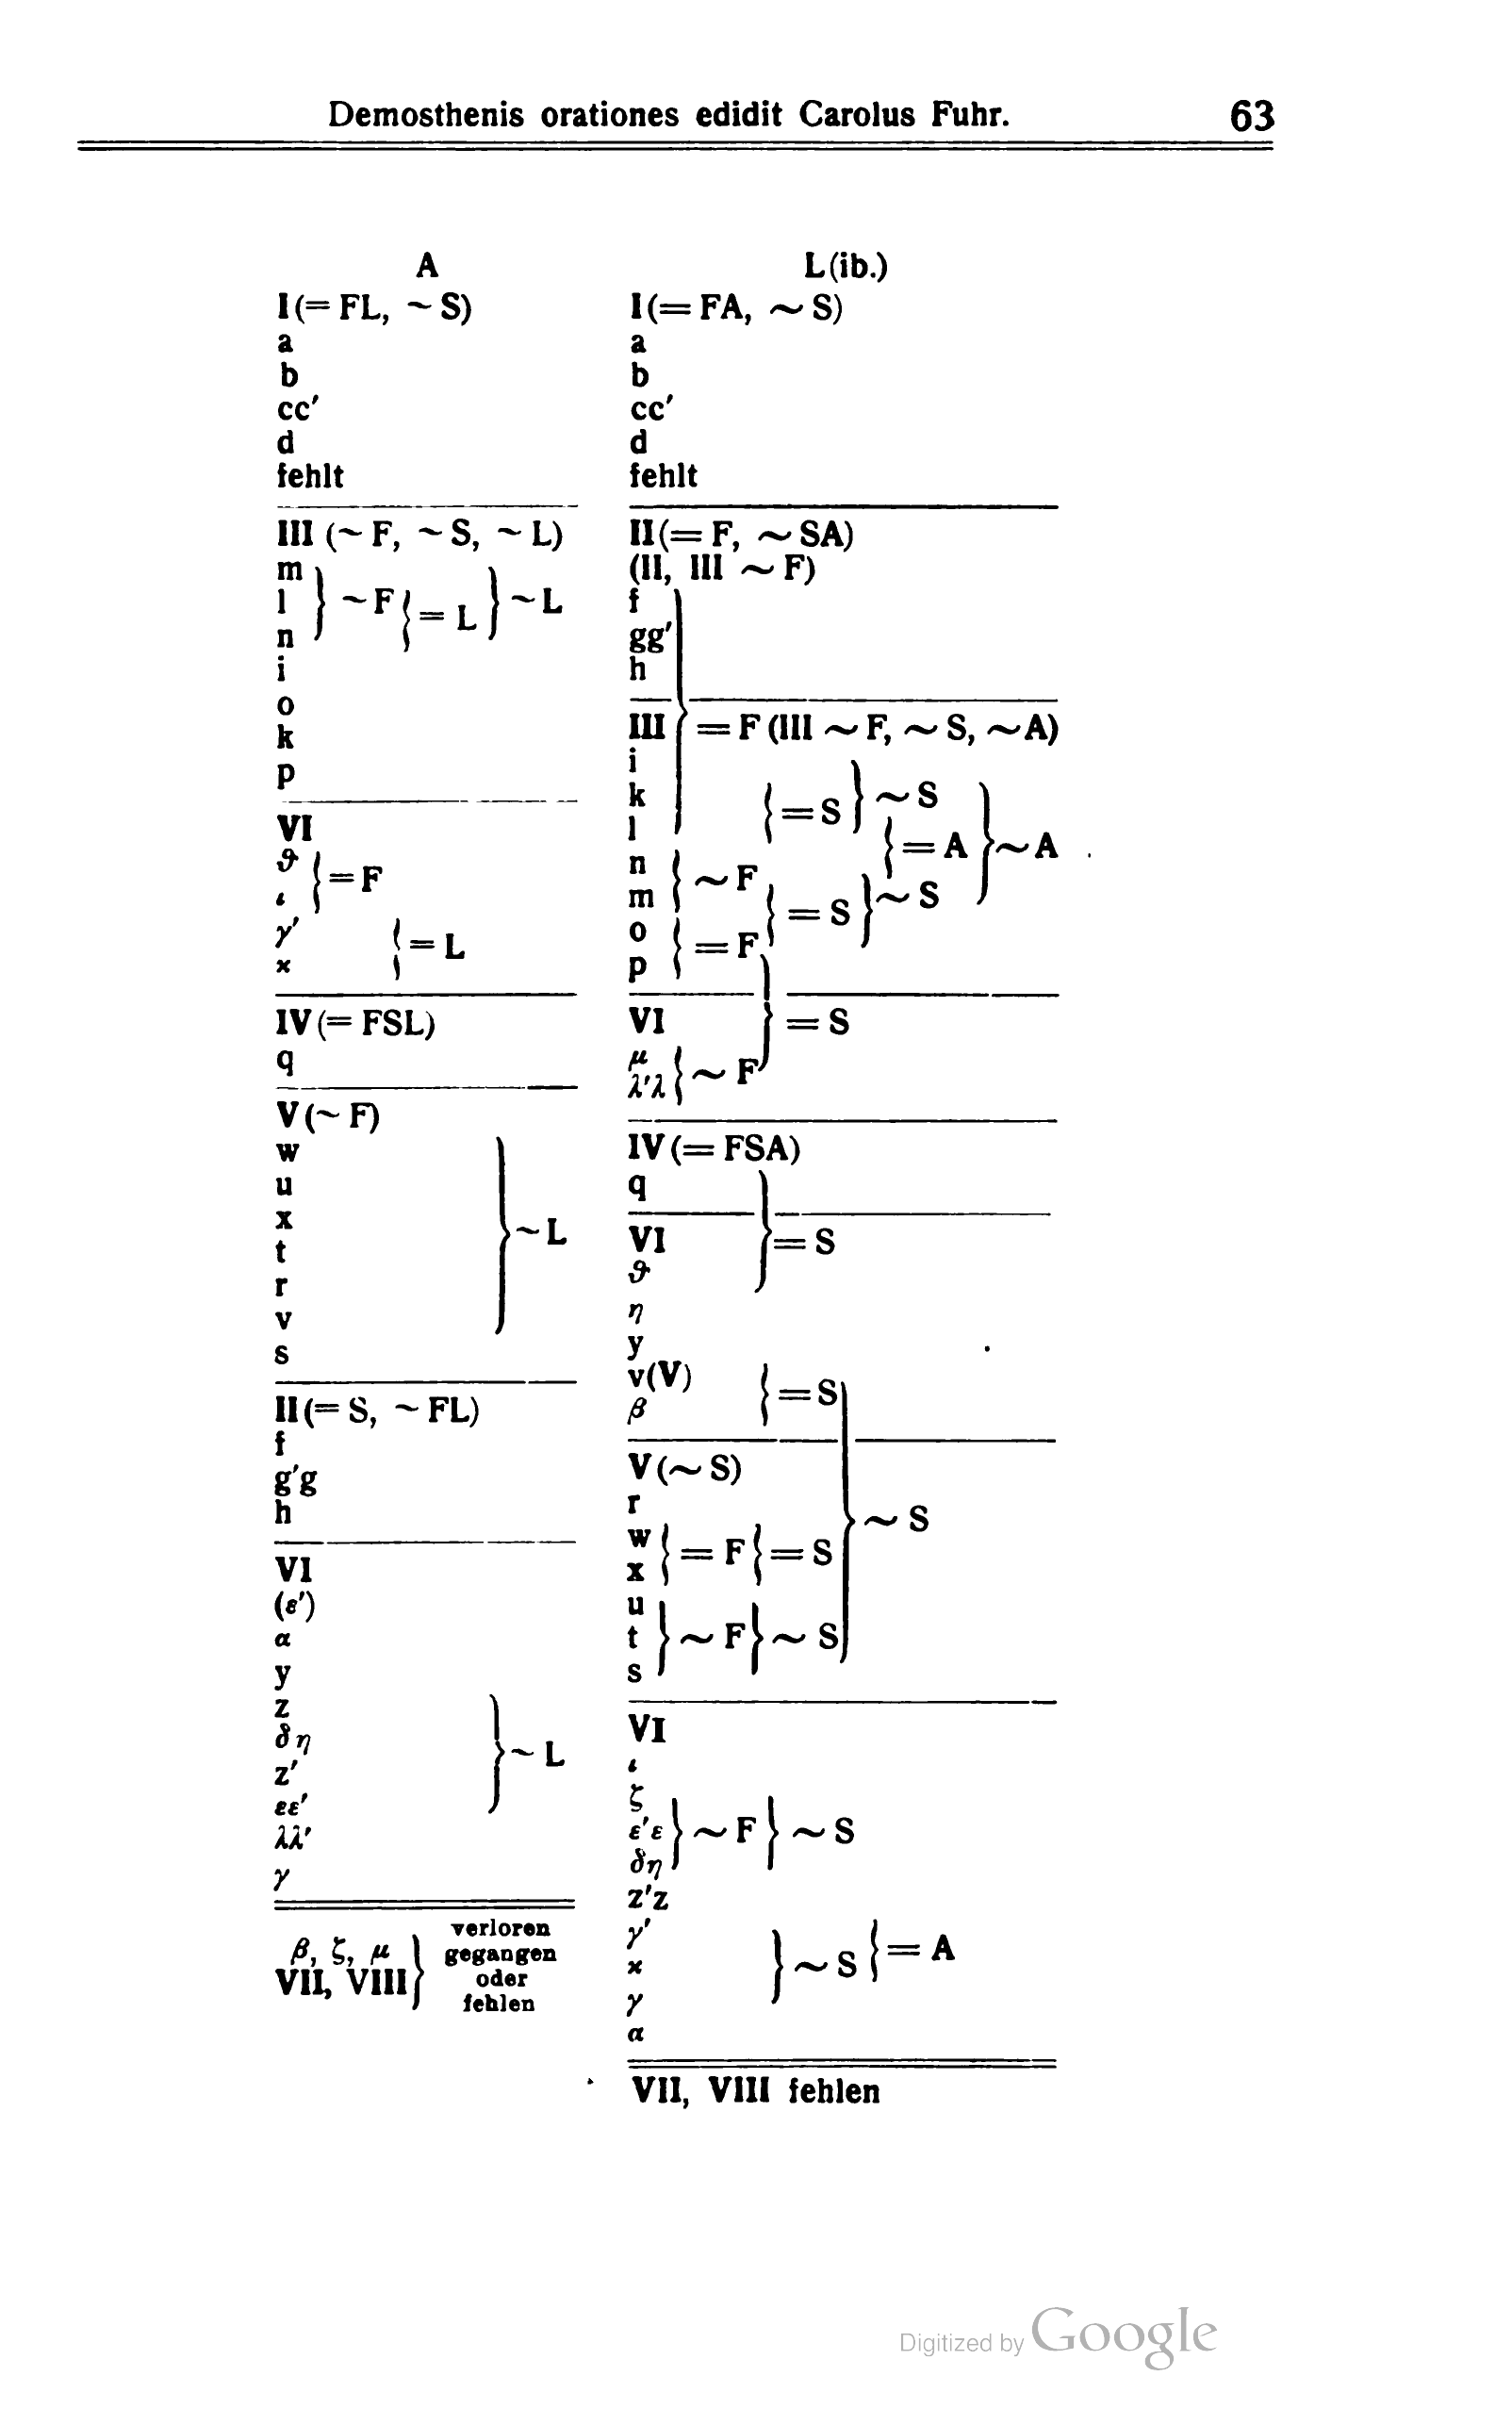 Demosthenis orationes edidit Carolus Fuhr. 63
A
I (= FL, ~ S)
a
b
cc'
d
fehlt
III (~ F, ~ S, ~ L)
m
l } ~ F { = L } ~ L
n
i
o
k
p
VI
ϑ { = F
ι
γ' { = L
ϰ
IV (= FSL)
q
V (~ F)
w
u
x } ~ L
t
r
v
s
II (= S, ~ FL)
f
g'g
h
VI
(ε')
α
y
z
δη } ~ L
z'
εε'
λλ'
γ
β, ζ, μ } verloren
VII, VIII gegangen
oder
fehlen
L (ib.)
I (= FA, ~ S)
a
b
cc'
d
fehlt
II (= F, ~ SA)
(II, III ~ F)
f
gg'
h
III } = F (III ~ F, ~ S, ~ A)
i
k { = S } ~ S
l { = A } ~ A
n { ~ F
m { = S } ~ S
o { = F
p
VI } = S
μ { ~ F
λ'λ
IV (= FSA)
q
VI } = S
ϑ
η
y
v (V) { = S
β
V (~ S)
r } ~ S
w { = F { = S
x
u
t } ~ F } ~ S
s
VI
ι
ζ
ε'ε } ~ F } ~ S
δη
z'z
γ' { = A
ϰ } ~ S
γ
α
VII, VIII fehlen
Digitized by Google